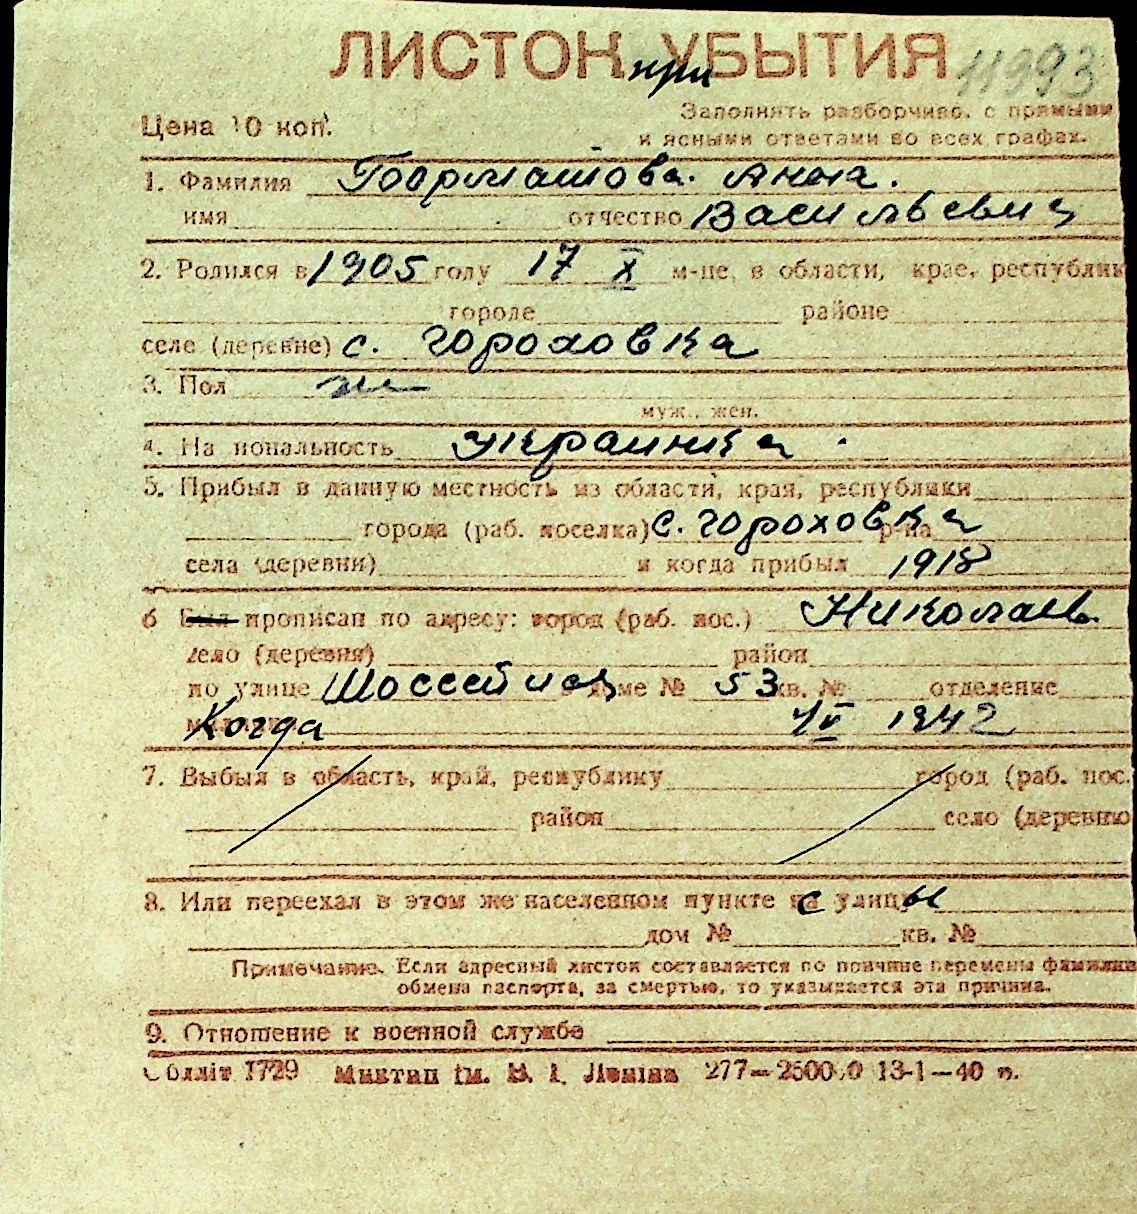 ЛИСТОК УБЫТИЯ
при
11993
Цена 10 коп.
Заполнять разборчиво, с прямыми
и ясными ответами во всех графах.
1. Фамилия Анна.
имя отчество Васильевна
2. Родился в 1905 году 17 X м-це, в области, крае, республик
городе районе
селе (деревне) с. Гороховка
3. Пол ж
муж., жен.
4. Национальность украинка.
5. Прибыл в данную местность из области, края, республики
города (раб. поселка) с. Гороховка р-на
села (деревни) и когда прибыл 1918
6 Был прописан по адресу: город (раб. пос.) Николаев.
село (деревня) район
по улице Шоссейная доме № 53 кв. № отделение
Когда 1942
7. Выбыл в область, край, республику город (раб. пос.
район село (деревню
8. Или переехал в этом же населенном пункте с улицы
дом № кв. №
Примечание. Если адресный листок составляется по причине перемены фамилии
обмена паспорта, за смертью, то указывается эта причина.
9. Отношение к военной службе
Облліт 1729 Миктип ім. В. І. Леніна 277—25000 13-1—40 п.